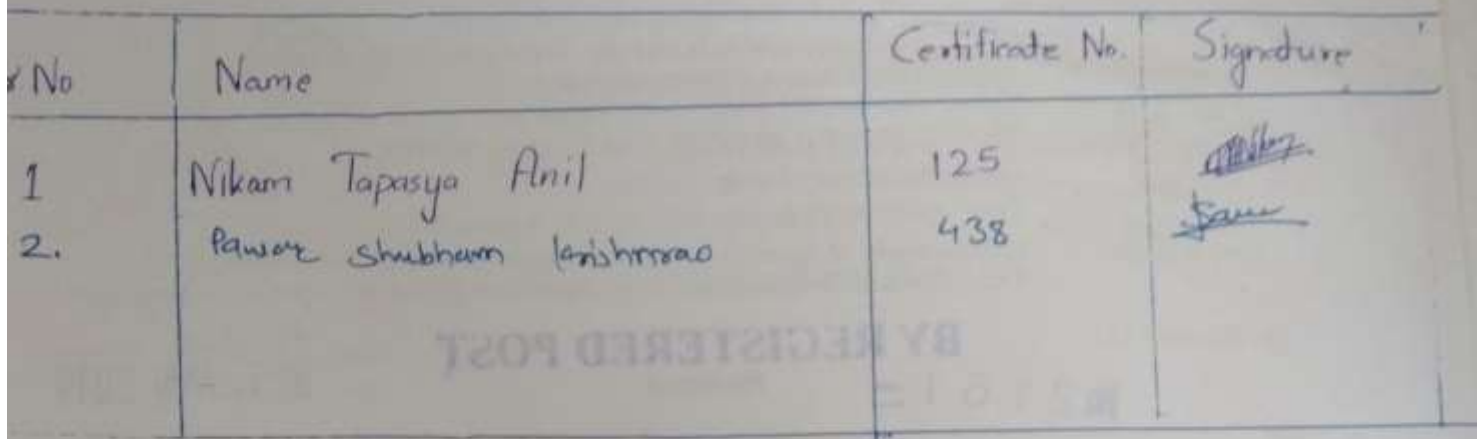 r No Name Certificate No. Signature
1 Nikam Tapasya Anil 125
2. Pawar Shubham krishnrao 438
BY REGISTERED POST